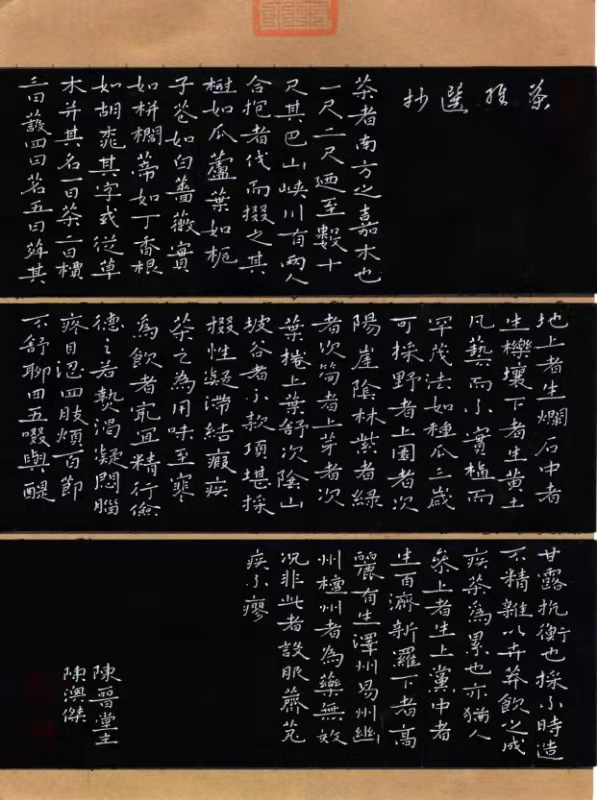 茶經選抄
茶者南方之嘉木也
一尺二尺迺至數十
尺其巴山峽川有兩人
合抱者伐而掇之其
樹如瓜蘆葉如梔
子花如白薔薇實
如栟櫚蒂如丁香根
如胡桃其字或從草
木并其名一曰茶二曰檟
三曰蔎四曰茗五曰荈其
地上者生爛石中者
生櫟壤下者生黃土
凡藝而不實植而
罕茂法如種瓜三歲
可採野者上園者次
陽崖陰林紫者綠
者次筍者上芽者次
葉捲上葉舒次陰山
坡谷者不款項堪採
掇性凝滯結瘕疾
茶之為用味至寒
為飲者冣宜精行儉
德之若熱渴凝悶腦
疼目涩四肢煩百節
不舒聊四五啜與醍
甘露抗衡也採不時造
不精雜以卉莽飲之成
疾茶為累也亦猶人
參上者生上黨中者
生百濟新羅下者高
麗有生澤州易州幽
州檀州者為藥無效
況非此者設服薺苨
疾不瘳
陳醫堂主
陳澳傑